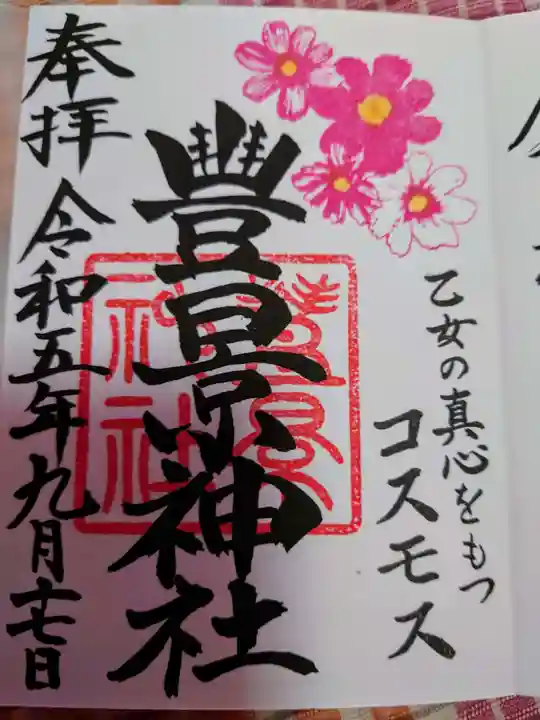 乙女の真心をもつ
コスモス
豐景神社
豐景
神社
奉拝 令和五年九月十七日